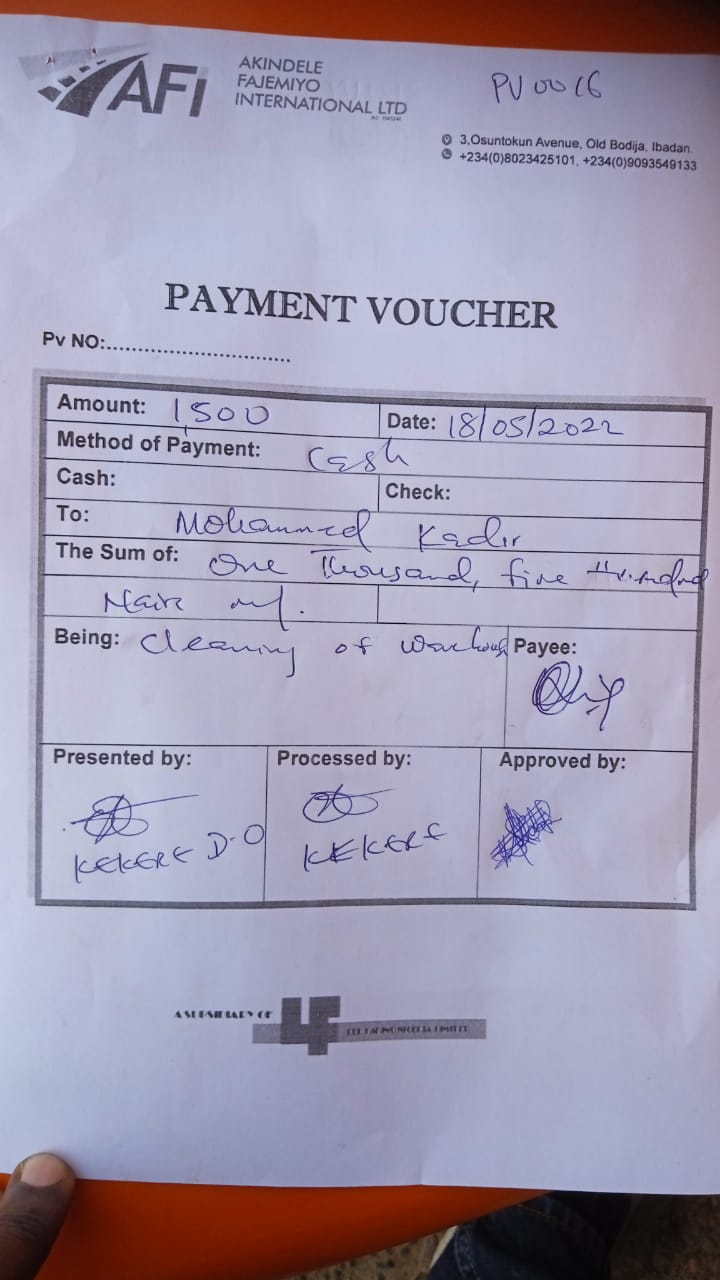 AFI
AKINDELE
FAJEMIYO
INTERNATIONAL LTD
PV 0016
3,Osuntokun Avenue, Old Bodija, Ibadan.
+234(0)8023425101, +234(0)9093549133
PAYMENT VOUCHER
Pv NO:..............................
Amount: 1,500 Date: 18/05/2022
Method of Payment: Cash
Cash: Check:
To: Mohammed Kadir
The Sum of: One Thousand, five Hundred
Naira
Being: Cleaning of warehouse Payee:
Presented by: Processed by: Approved by:
KEKERE D.O KEKERE
A SUBSIDIARY OF